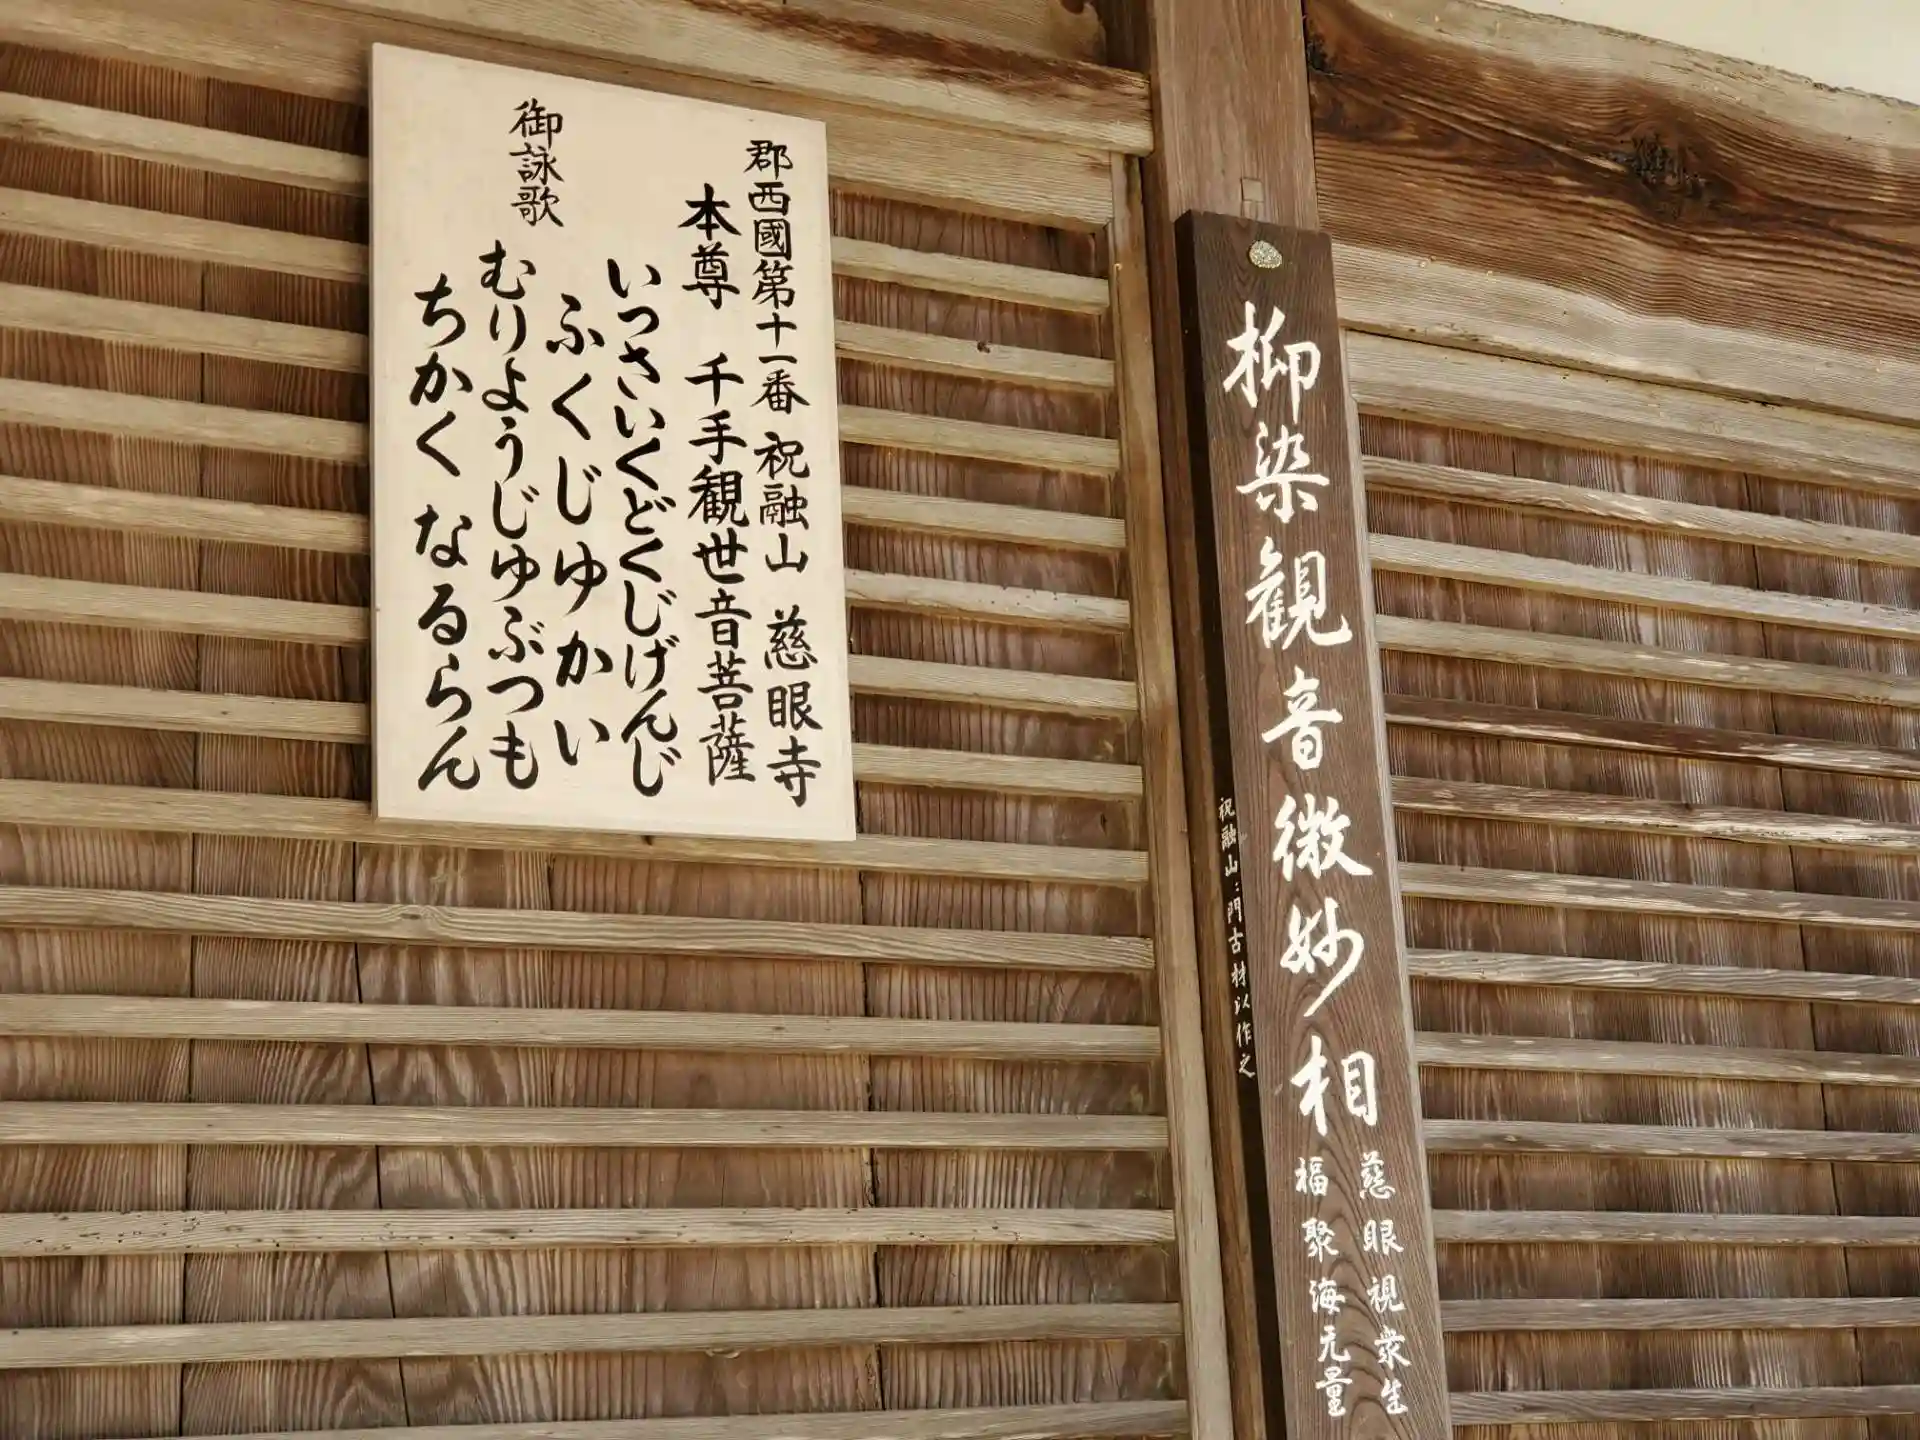 郡西國第十一番 祝融山 慈眼寺
本尊 千手観世音菩薩
御詠歌
いっさいくどくじげんじ
ふくじゆかい
むりようじゆぶつも
ちかくなるらん
柳染観音微妙相
慈眼視衆生
福聚海无量
祝融山山門古材以作之